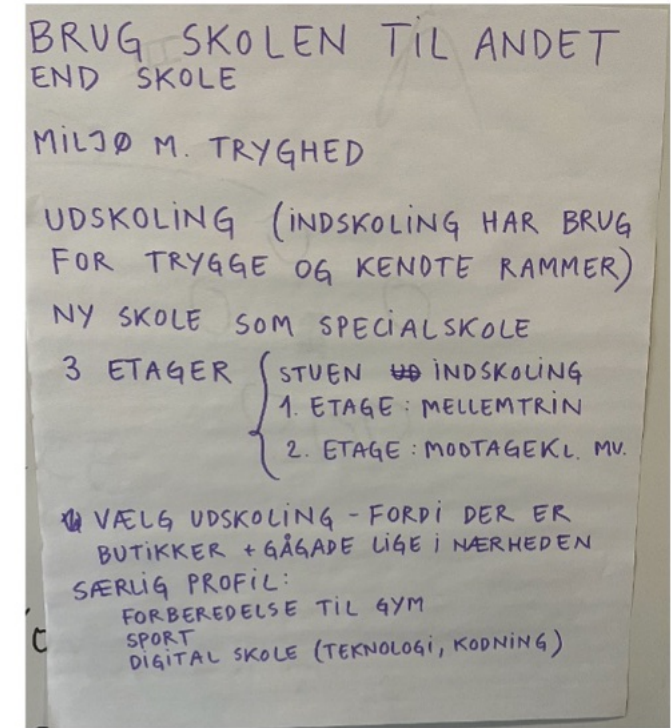 BRUG SKOLEN TIL ANDET
END SKOLE
MILJØ M. TRYGHED
UDSKOLING (INDSKOLING HAR BRUG
FOR TRYGGE OG KENDTE RAMMER)
NY SKOLE SOM SPECIALSKOLE
3 ETAGER { STUEN INDSKOLING
1. ETAGE : MELLEMTRIN
2. ETAGE : MODTAGEKL. MV.
VÆLG UDSKOLING - FORDI DER ER
BUTIKKER + GÅGADE LIGE I NÆRHEDEN
SÆRLIG PROFIL:
FORBEREDELSE TIL GYM
SPORT
DIGITAL SKOLE (TEKNOLOGI, KODNING)